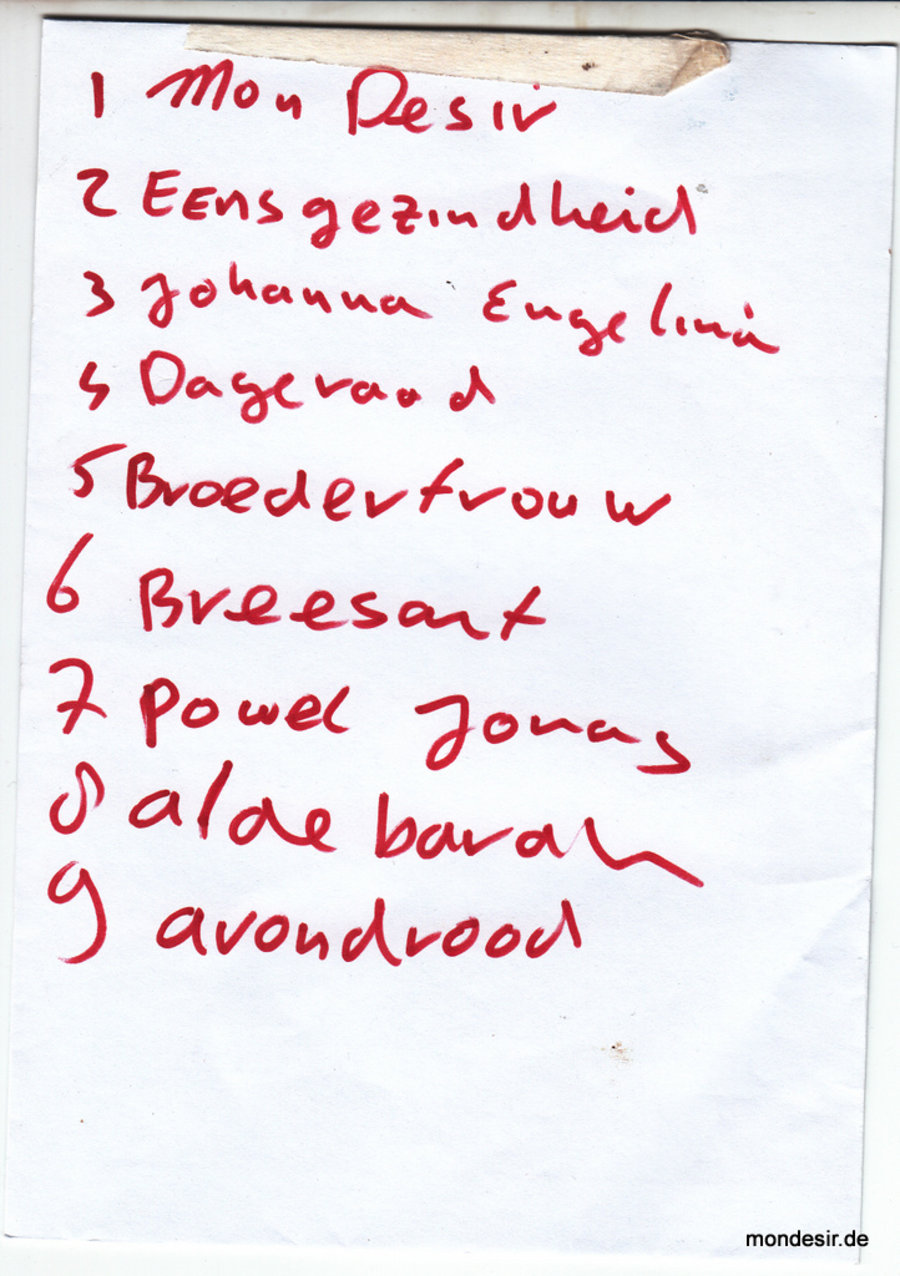 1 Mon Desir
2 Eensgezindheid
3 Johanna Engelina
4 Dageraad
5 Broedertrouw
6 Breesant
7 Powel Jonas
8 aldebaran
9 avondrood
mondesir.de